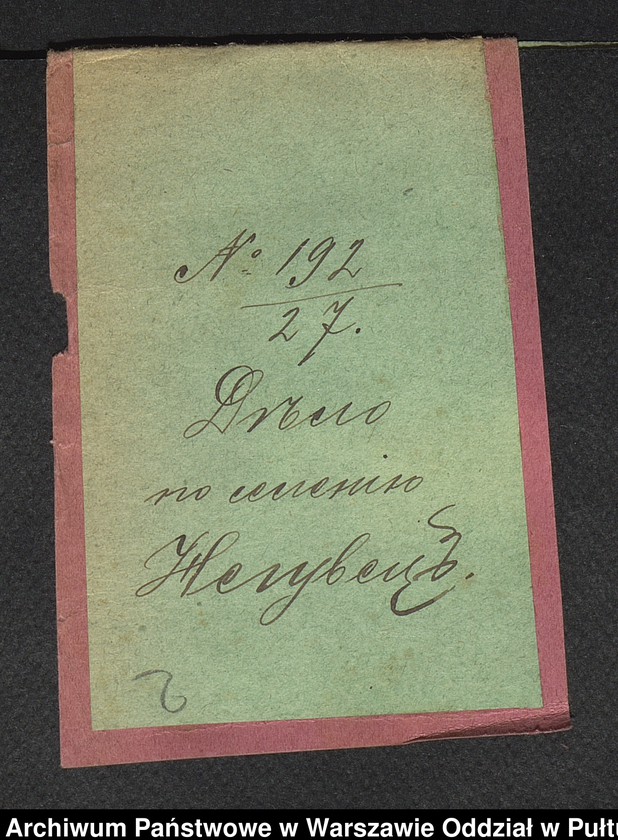 № 192
27.
Дѣло
по селенію
Жегувецъ.
2
Archiwum Państwowe w Warszawie Oddział w Pułtu